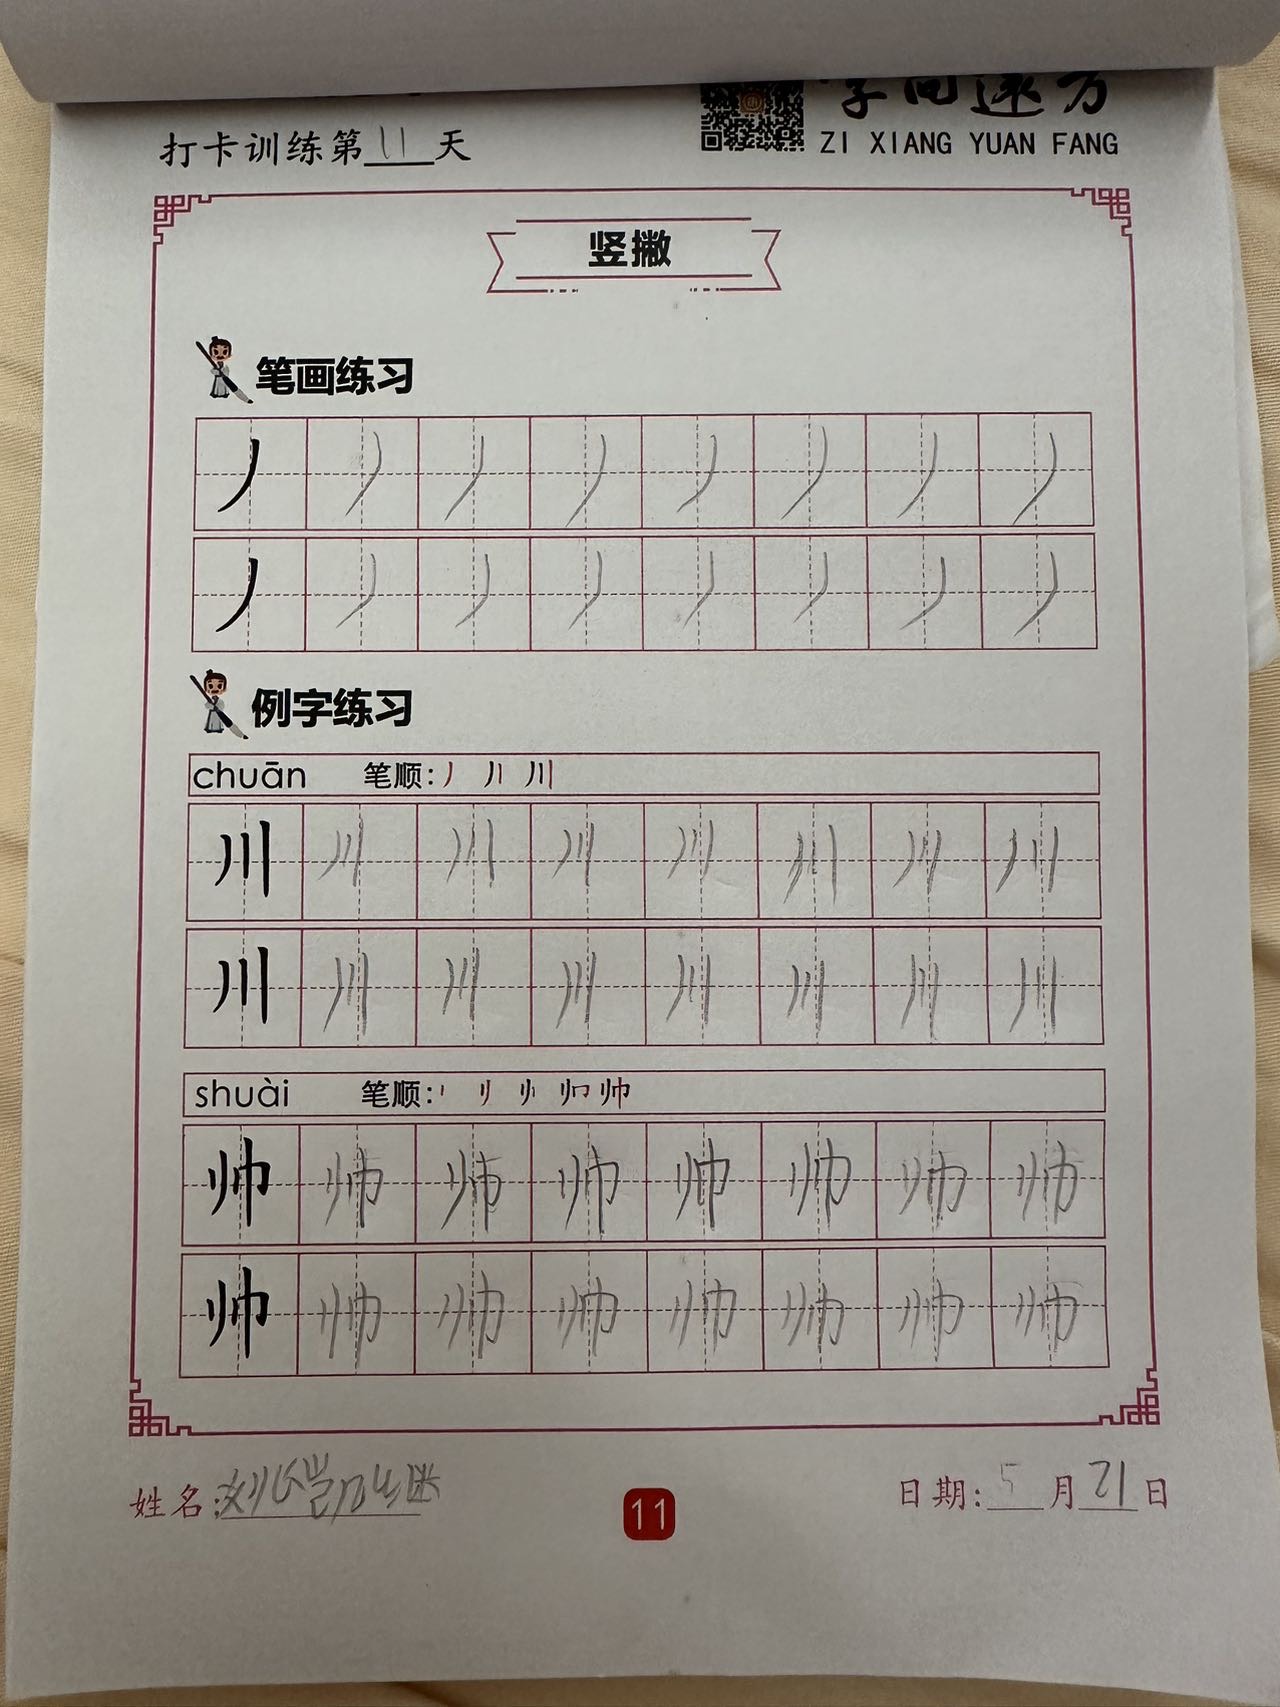 字向远方
打卡训练第11天
ZI XIANG YUAN FANG
竖撇
笔画练习
丿 丿 丿 丿 丿 丿 丿 丿
丿 丿 丿 丿 丿 丿 丿 丿
例字练习
chuān 笔顺: 丿 川
川 川 川 川 川 川 川 川
川 川 川 川 川 川 川 川
shuài 笔顺: 帅
帅 帅 帅 帅 帅 帅 帅 帅
帅 帅 帅 帅 帅 帅 帅 帅
姓名: 刘
11
日期: 5月21日